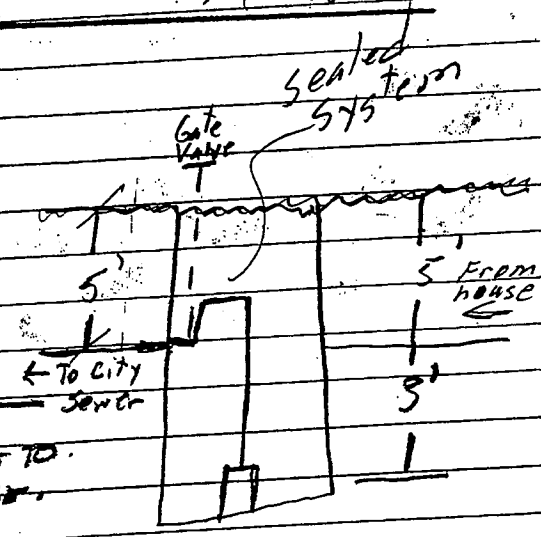 sealed
system
Gate
Valve
5'
5'
From
house
← To City
Sewer
3'
TO.